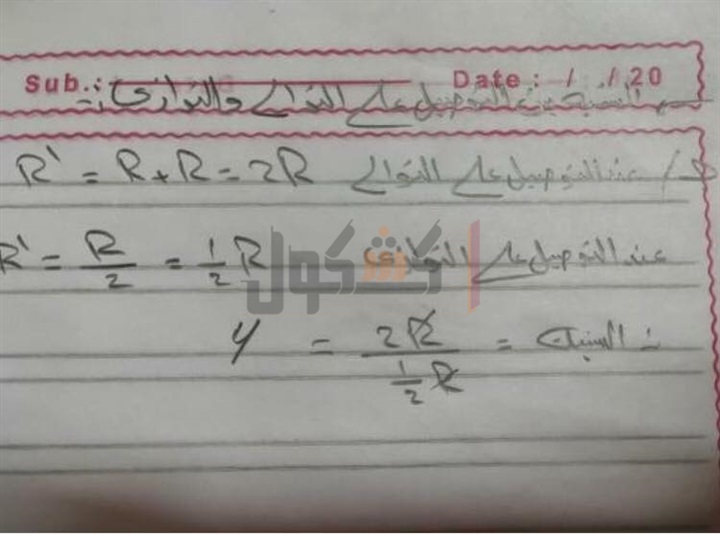 Sub.: Date: / / 20
النسبة بين التوصيل على التوالي والتوازي :-
عند التوصيل على التوالي R' = R + R = 2R
عند التوصيل على التوازي R' = R/2 = 1/2 R
كشكول
∴ النسبة = 2R / 1/2 R = 4